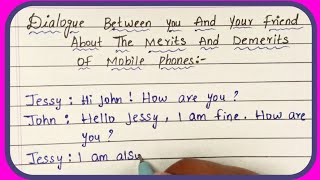 Dialogue Between you And Your Friend
About The Merits And Demerits
Of Mobile Phones:-
Jessy : Hi John! How are you ?
John : Hello Jessy, I am fine. How are
you ?
Jessy : I am also